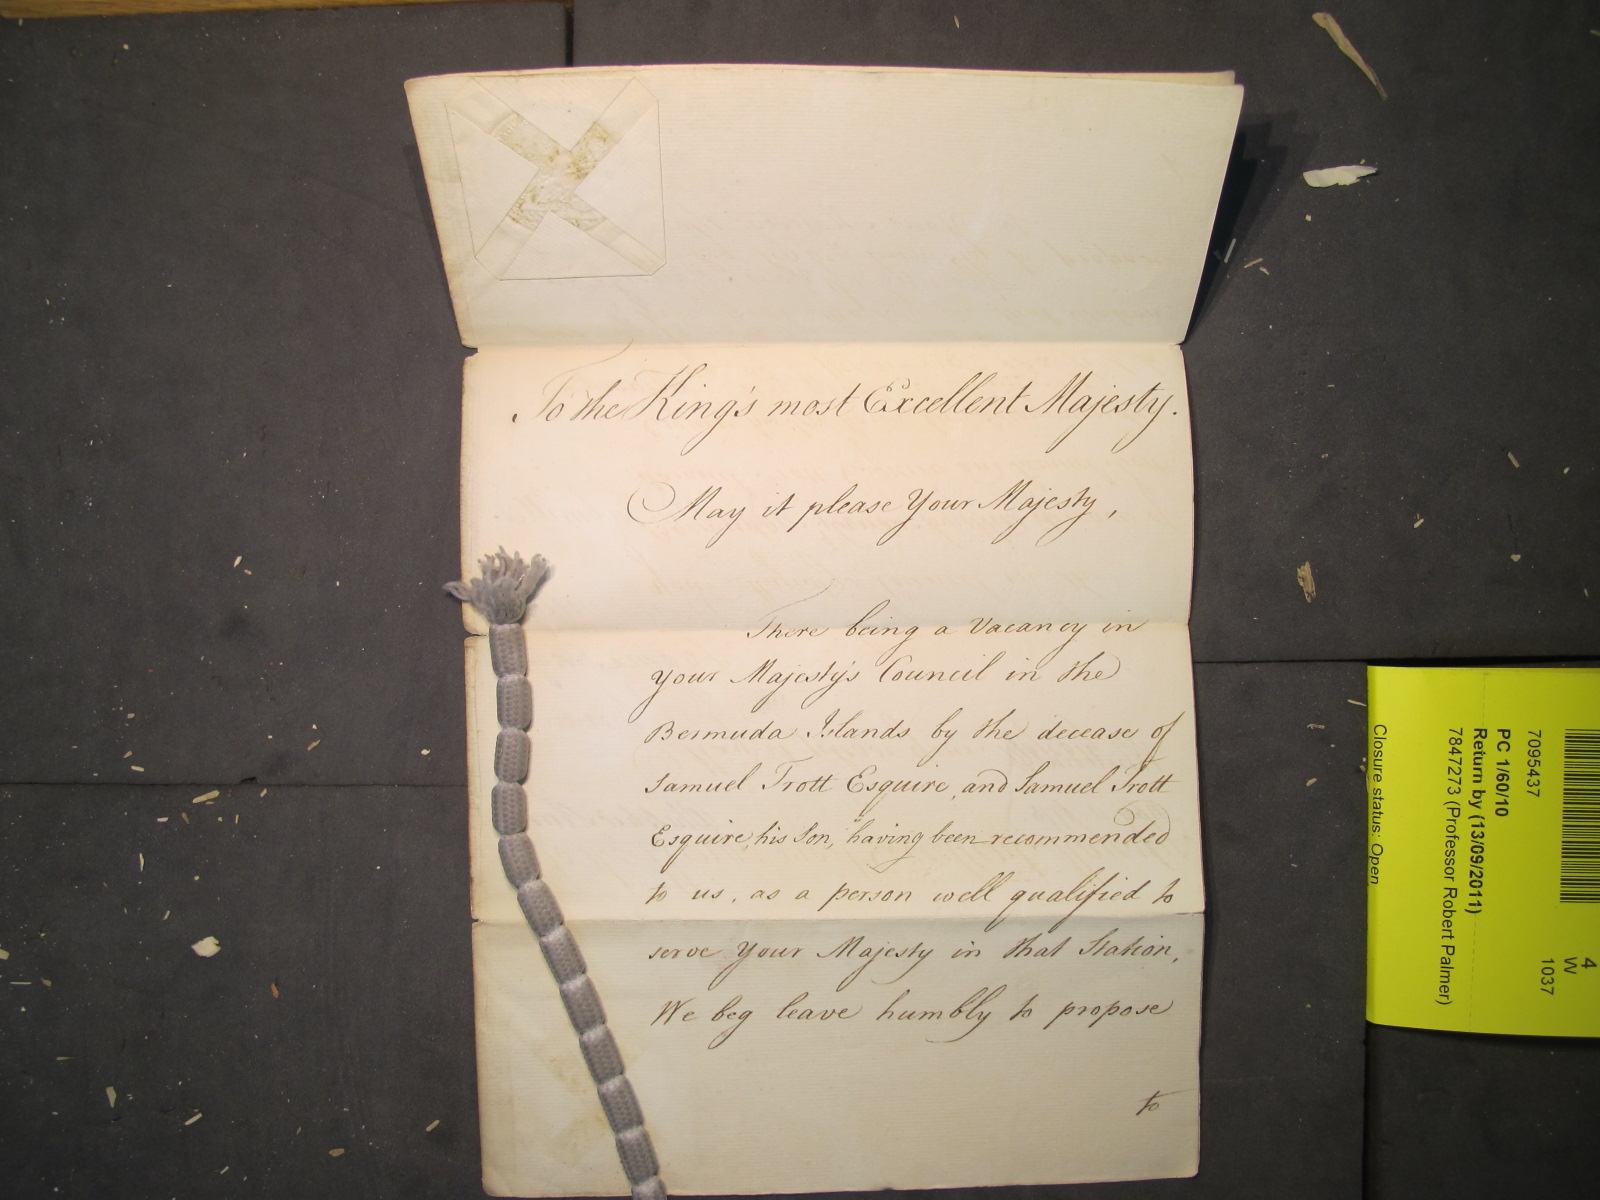 To the King's most Excellent Majesty.
May it please Your Majesty,
There being a Vacancy in
your Majesty's Council in the
Bermuda Islands by the decease of
Samuel Trott Esquire, and Samuel Trott
Esquire, his Son, having been recommended
to us, as a person well qualified to
serve Your Majesty in that Station,
We beg leave humbly to propose
to
4
W
1037
7095437
PC 1/60/10
Return by (13/09/2011)
7847273 (Professor Robert Palmer)
Closure status: Open